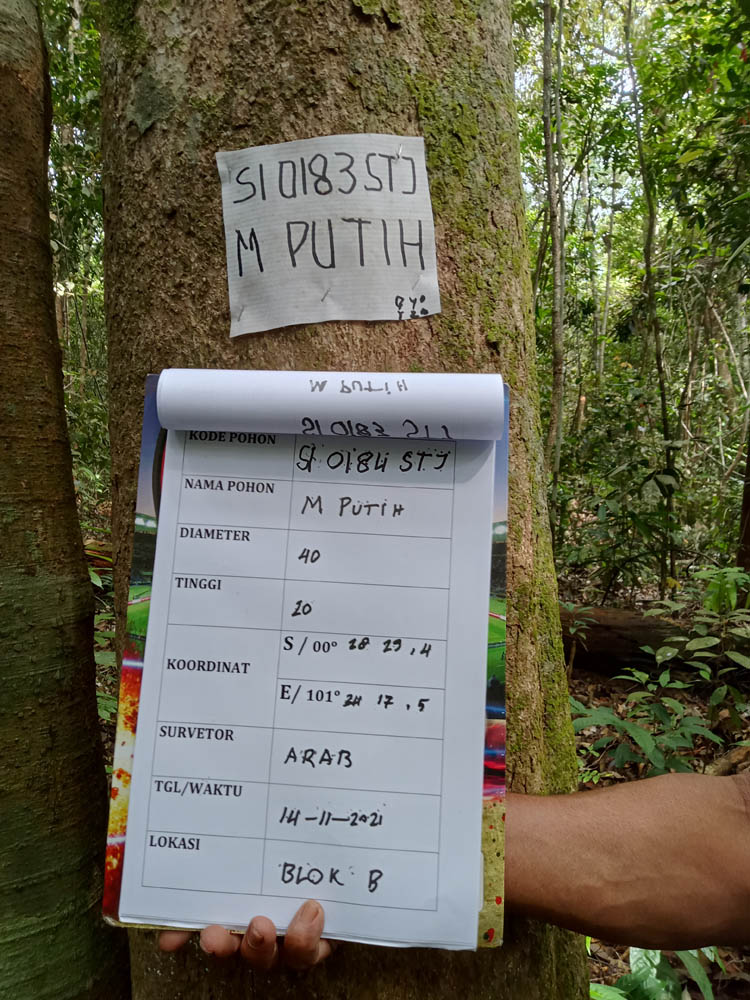 SI 0183 STJ
M PUTIH
M PUTIH
SI 0183 STJ
KODE POHON SI 0184 STJ
NAMA POHON M PUTIH
DIAMETER 40
TINGGI 20
KOORDINAT S / 00° 28 29,4
E/ 101° 34 17,5
SURVETOR ARAB
TGL/WAKTU 14-11-2021
LOKASI BLOK B